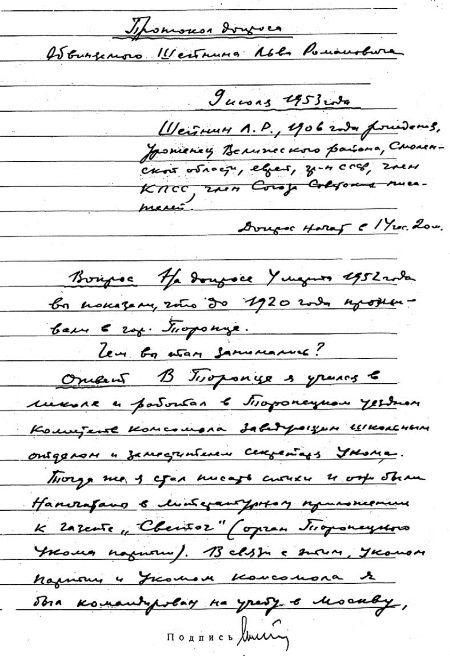 Протокол допроса
Обвиняемого Шейнина Льва Романовича
9 июля 1953 года
Шейнин Л.Р., 1906 года рождения,
уроженец Велижского района, Смолен-
ской области, еврей, гр-н СССР, член
КПСС, член Союза Советских писа-
телей.
Допрос начат в 14 час. 20 м.
Вопрос На допросе 4 марта 1952 года
вы показали, что до 1920 года прожи-
вали в гор. Торопце.
Чем вы там занимались?
Ответ В Торопце я учился в
школе и работал в Торопецком уездном
комитете комсомола заведующим школьным
отделом и заместителем секретаря Укома.
Тогда же я стал писать стихи и они были
напечатаны в литературном приложении
к газете "Светоч" (орган Торопецкого
Укома партии). В связи с этим, Укомом
партии и Укомом комсомола я
был командирован на учебу в Москву,
Подпись